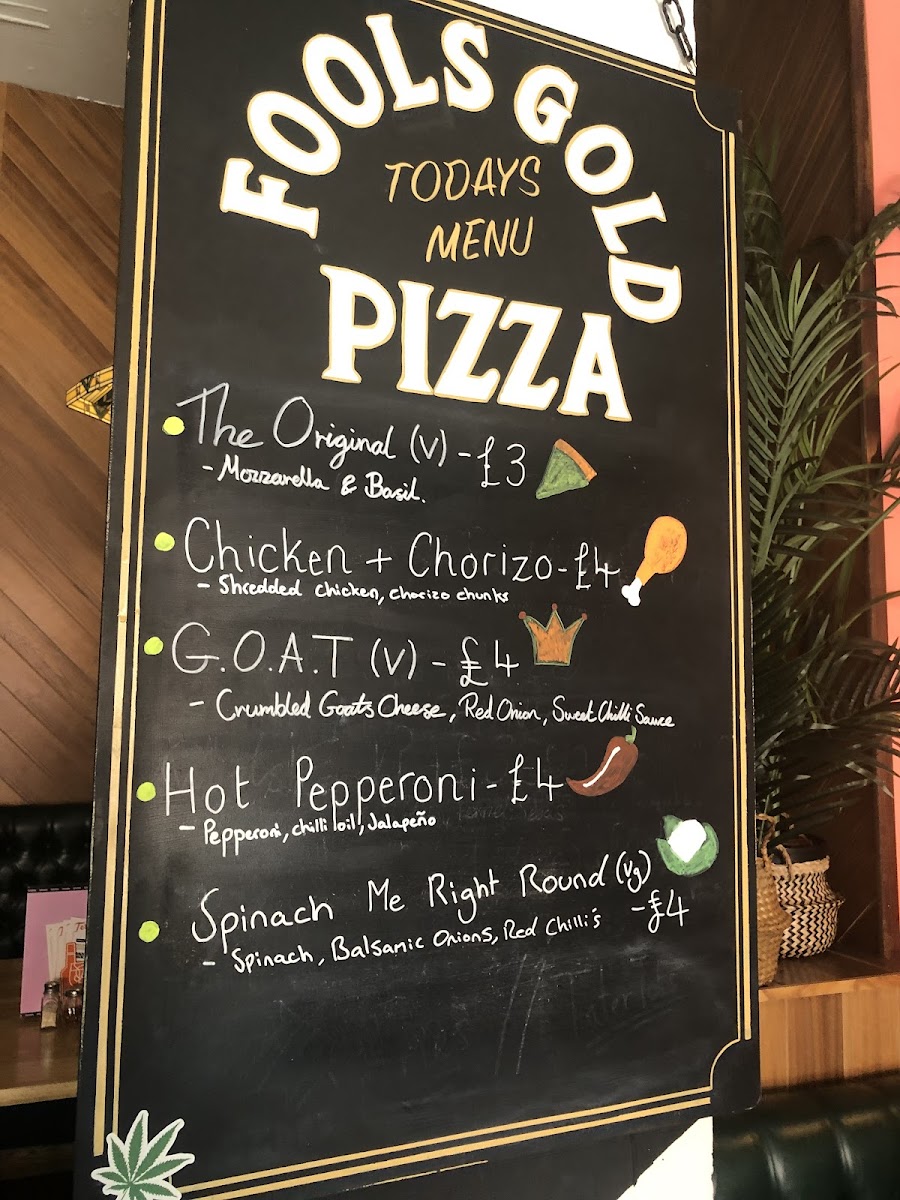 FOOLS GOLD
TODAYS
MENU
PIZZA
The Original (V) - £3
- Mozzarella & Basil.
Chicken + Chorizo - £4
- Shredded chicken, chorizo chunks
G.O.A.T (V) - £4
- Crumbled Goats Cheese, Red Onion, Sweet Chilli Sauce
Hot Pepperoni - £4
- Pepperoni, chilli oil, Jalapeño
Spinach Me Right Round (Vg)
- £4
- Spinach, Balsamic Onions, Red Chilli's